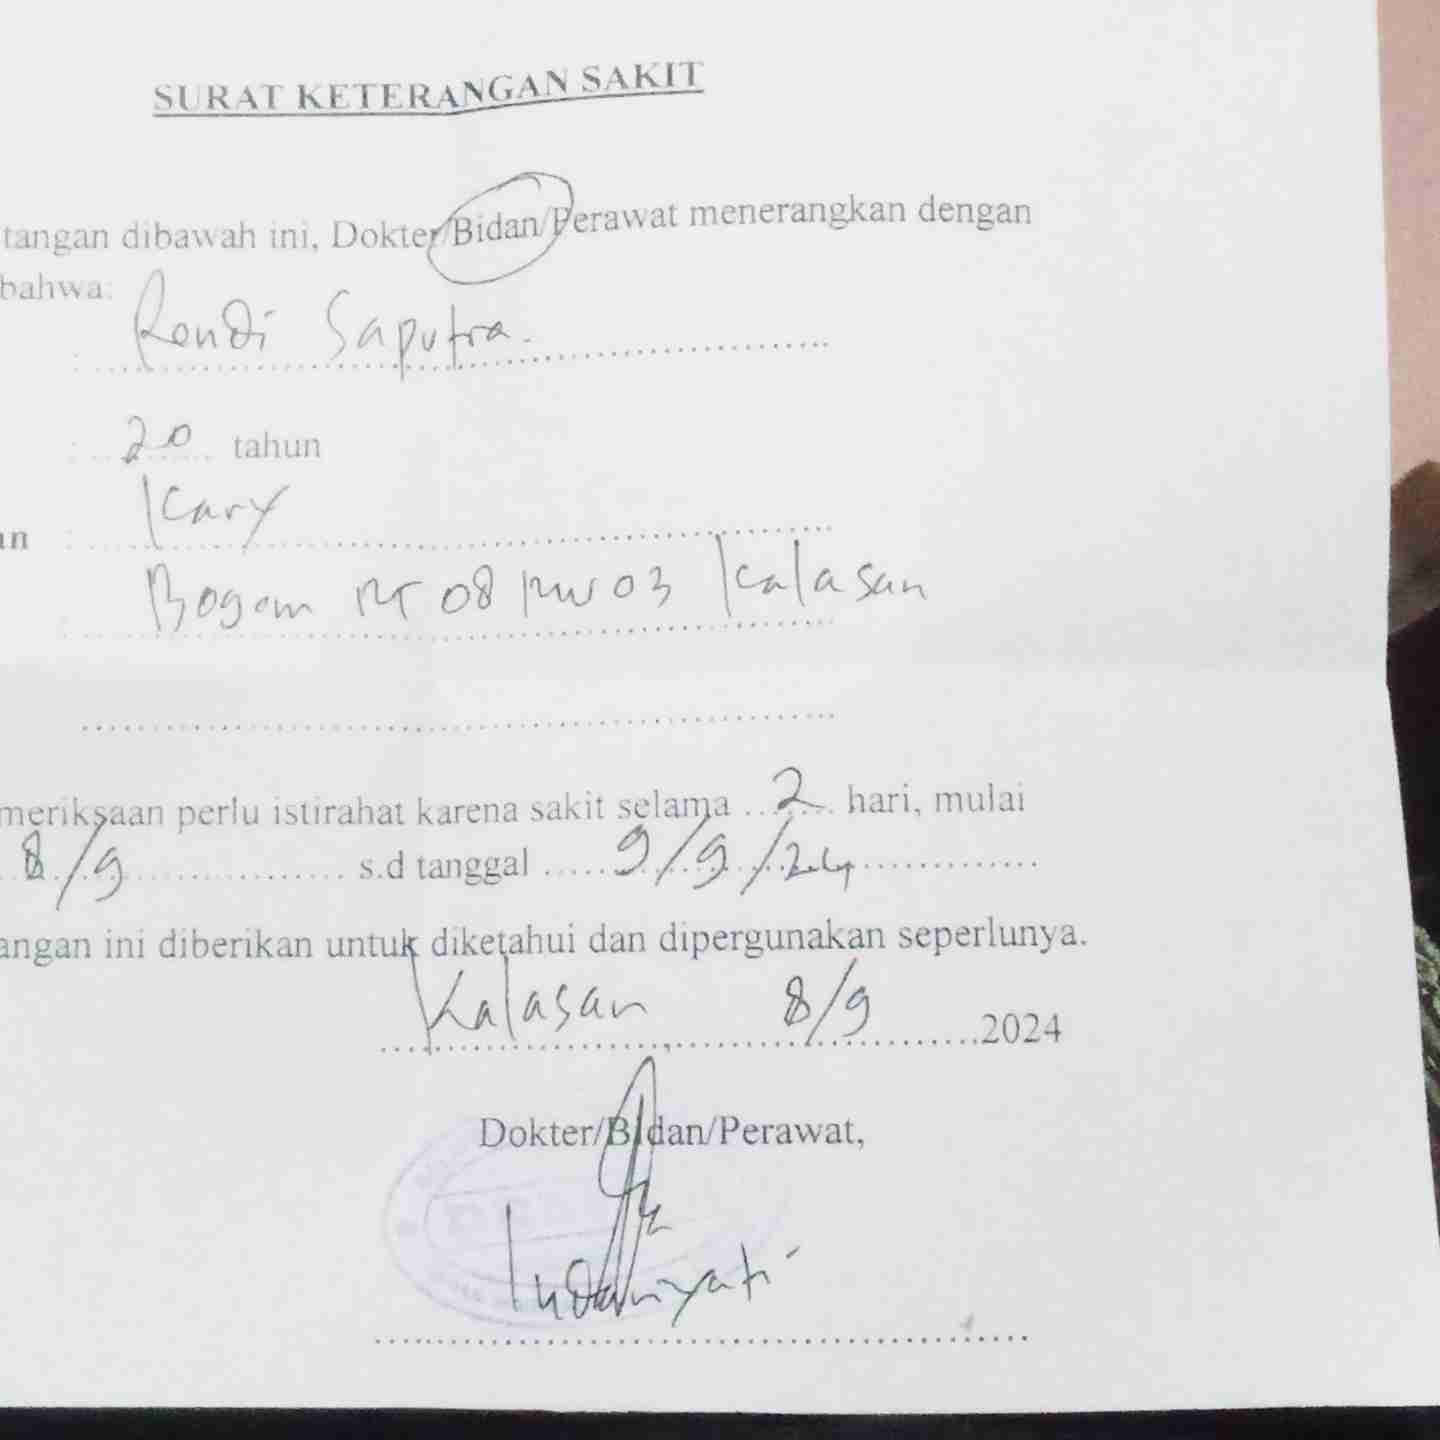 SURAT KETERANGAN SAKIT
tangan dibawah ini, Dokter/Bidan/Perawat menerangkan dengan
bahwa:
: Rendi Saputra.
: 20 tahun
an : Kary
: Bogem RT 08 RW 03 Kalasan
meriksaan perlu istirahat karena sakit selama 2 hari, mulai
8/9 s.d tanggal 9/9/24
angan ini diberikan untuk diketahui dan dipergunakan seperlunya.
Kalasan 8/9 2024
Dokter/Bidan/Perawat,
Indaryati